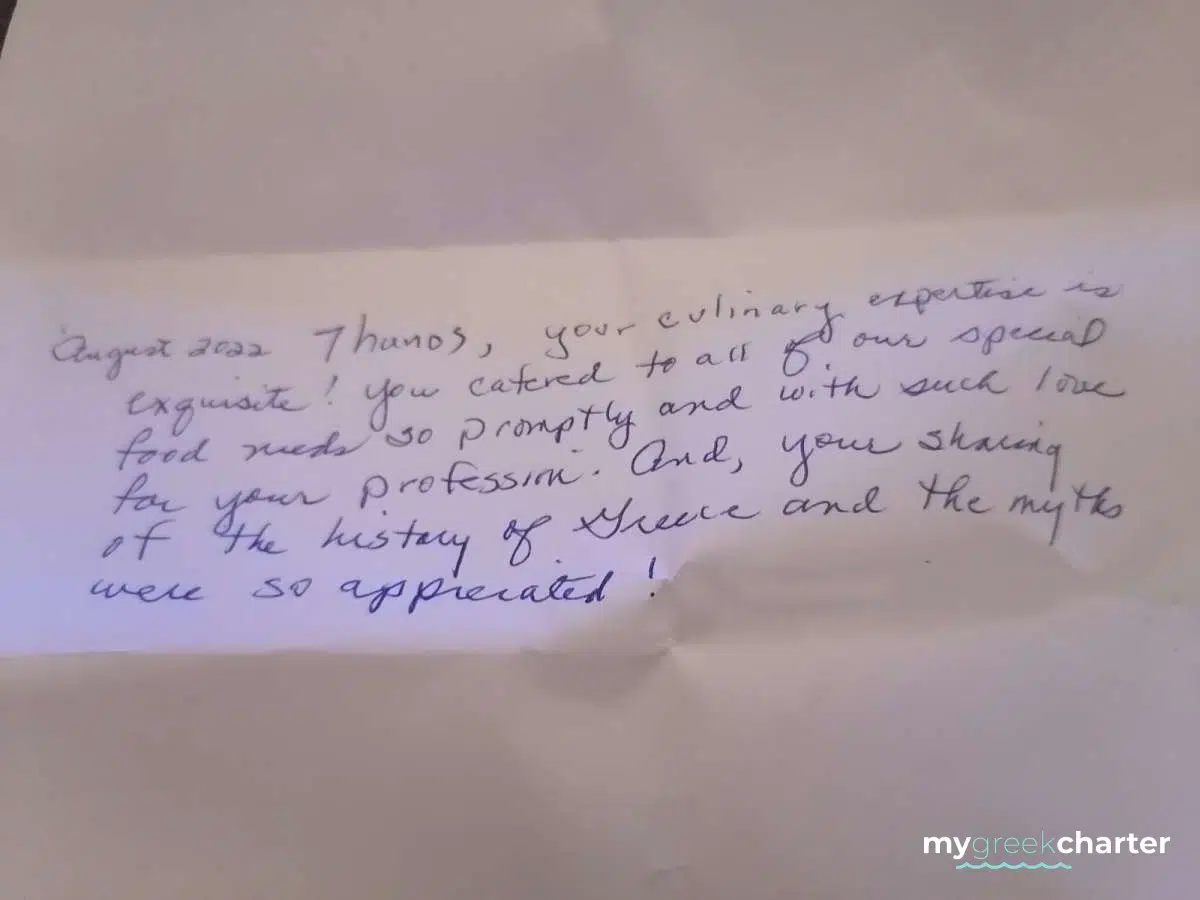 August 2022 Thanos, your culinary expertise is
exquisite! you catered to all of our special
food needs so promptly and with such love
for your profession. And, your sharing
of the history of Greece and the myths
were so appreciated!
mygreekcharter